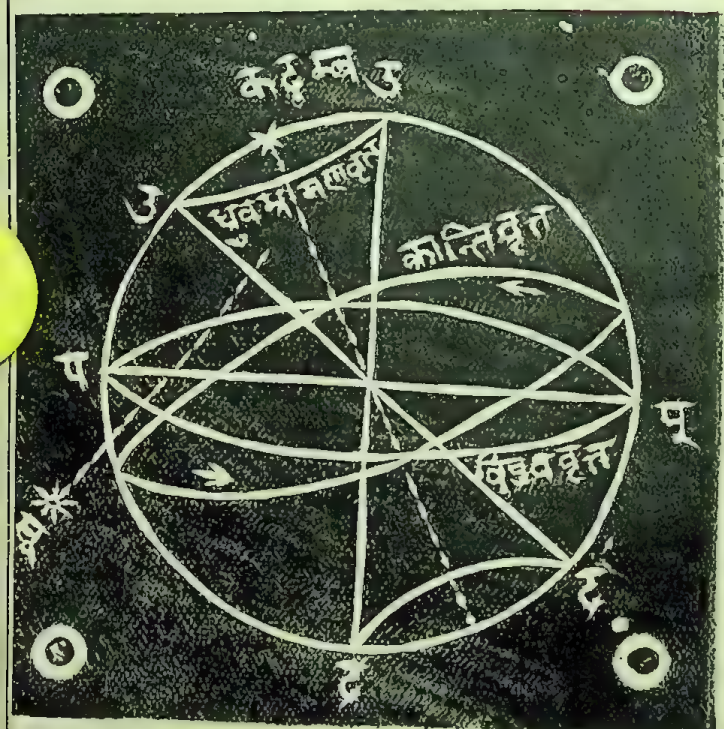 कदम्ब उ
उ
ध्रुवभ्रमणवृत्त
क्रान्तिवृत्त
प
पू
विषुववृत्त
द
द